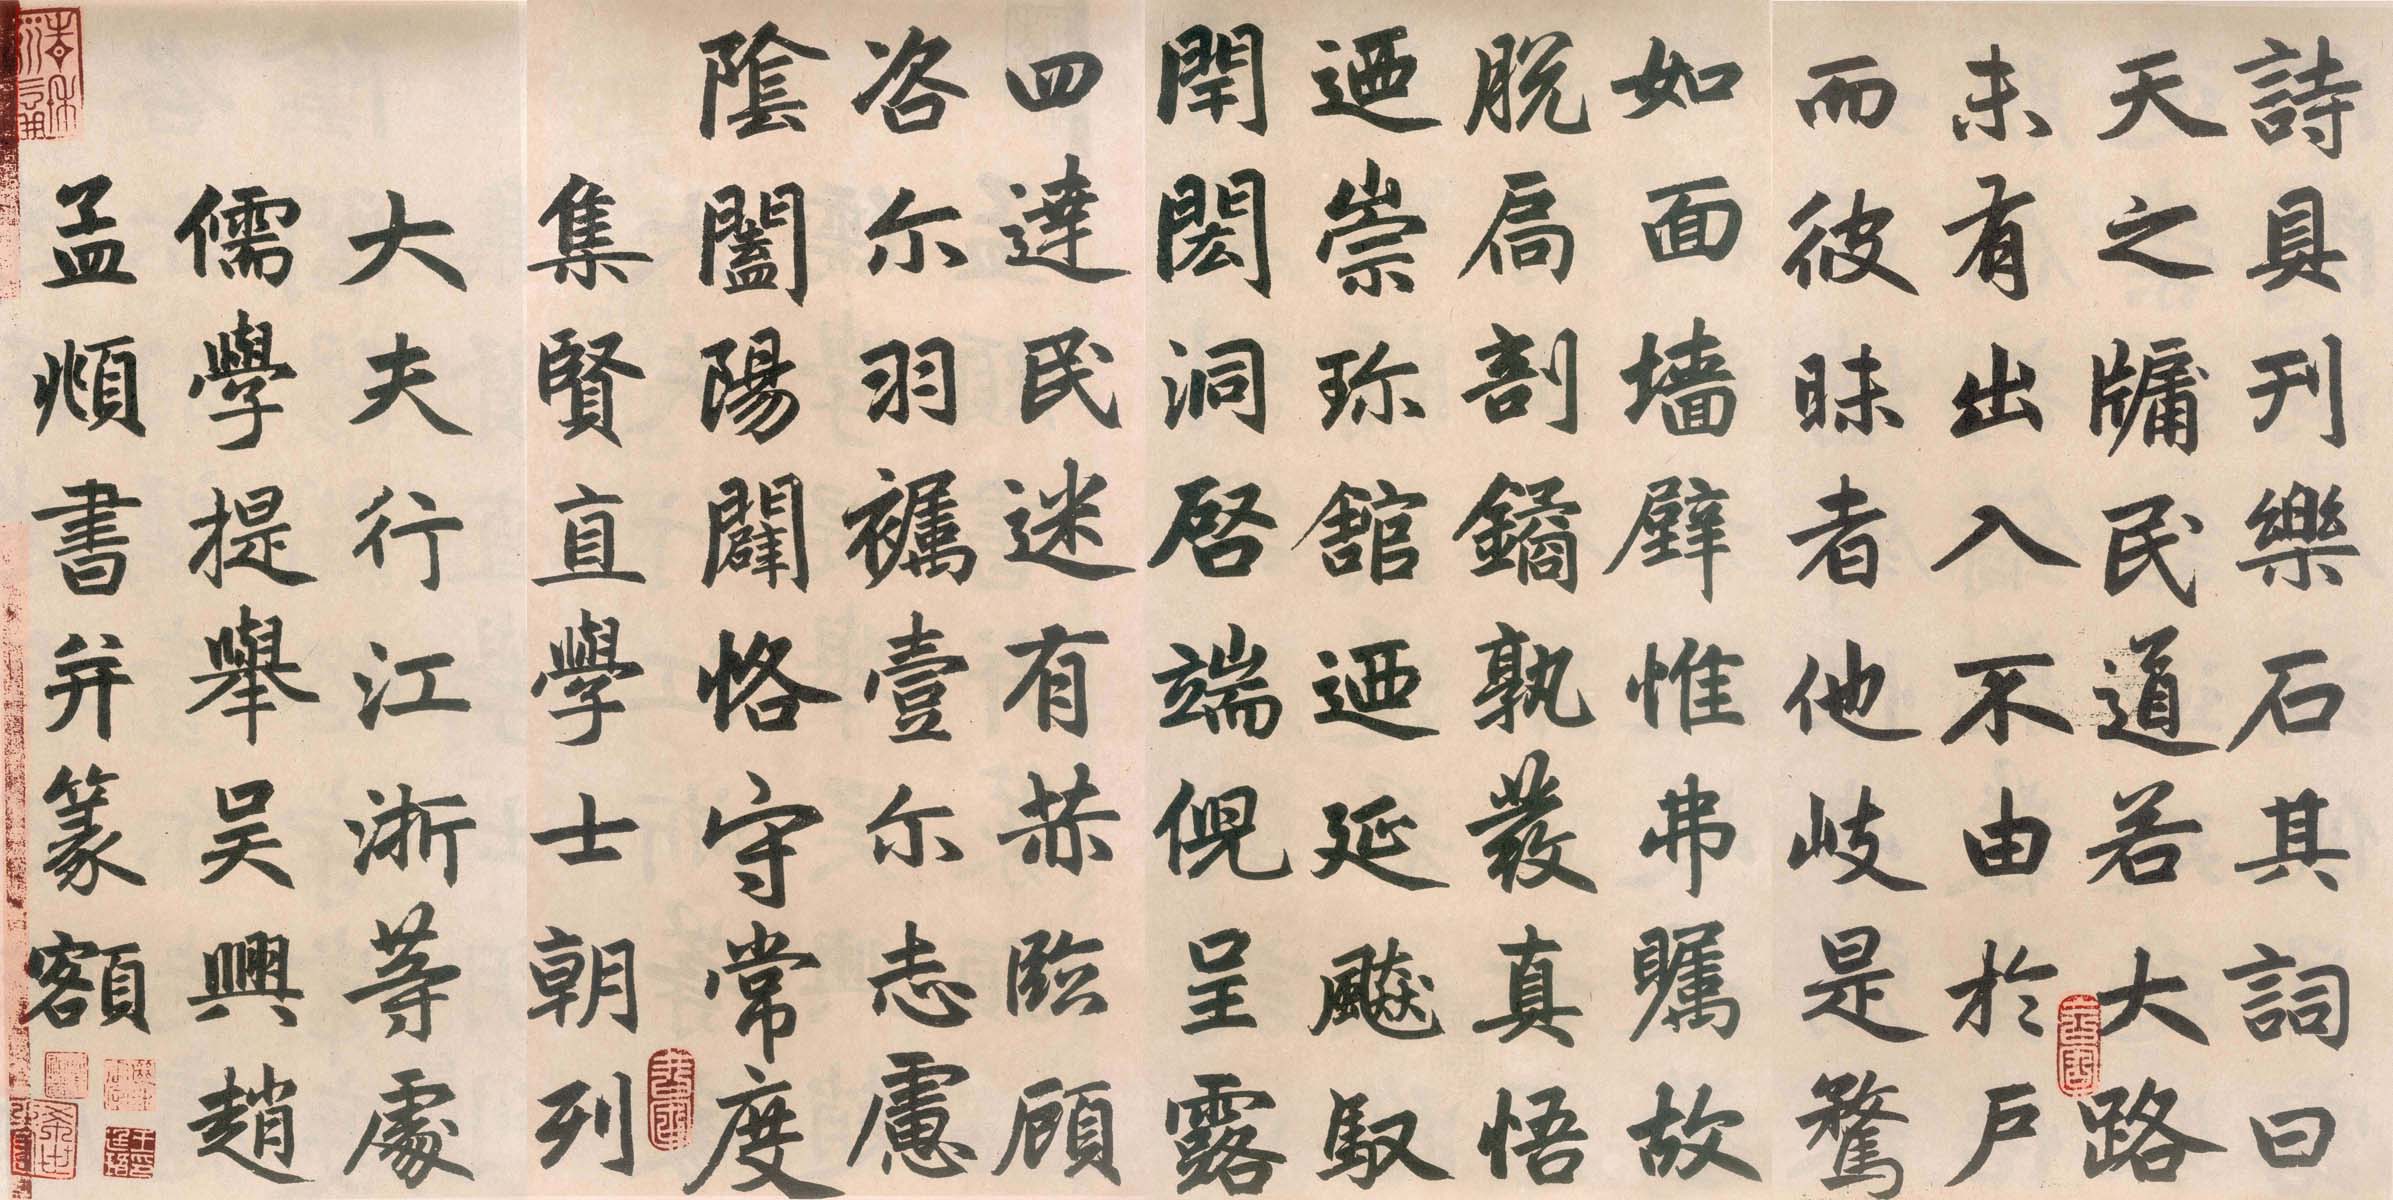 詩具刊樂石其詞曰
天之牖民道若大路
未有出入不由於戶
而彼昧者他岐是騖
如面墙壁惟弗矚故
脫扃剖鐍孰發真悟
迺崇珎館迺延飈馭
閈閎洞啓端倪呈露
四達民迷有赫臨顧
咨尔羽壹尔志慮
陰闔陽闢恪守常度
集賢直學士朝列
大夫行江浙等處
儒學提舉吳興趙
孟頫書并篆額